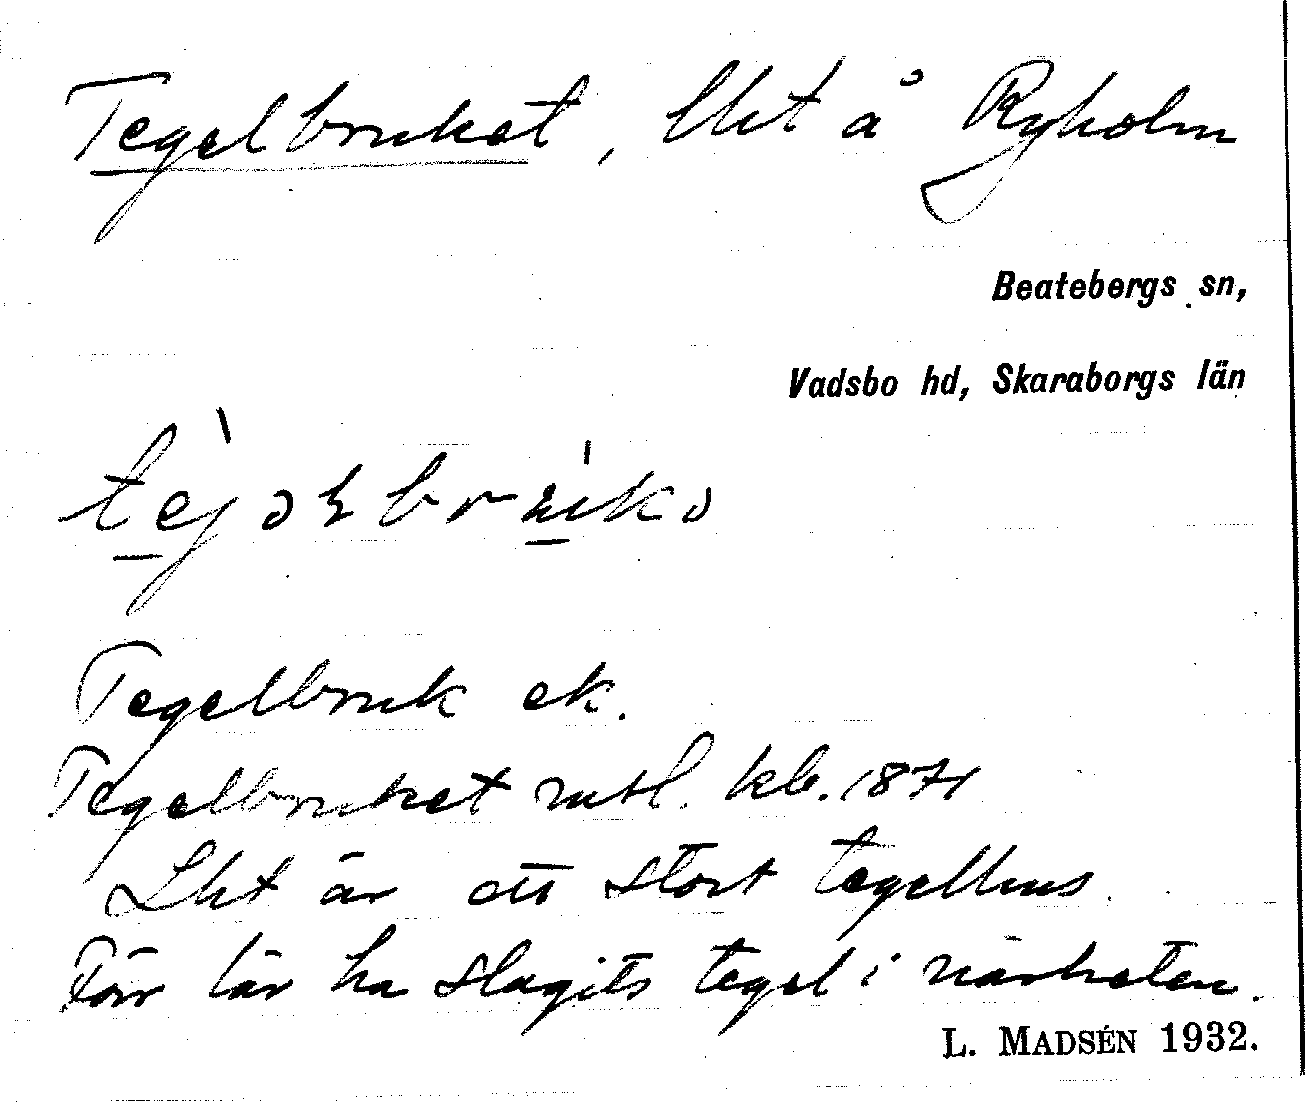 Tegelbruket, lht å Ryholm
Beatebergs sn,
Vadsbo hd, Skaraborgs län
Tegelbruk ek.
Tegelbruket mtl. kb. 1871
Lht är ett stort tegelhus.
Förr lär ha slagits tegel i närheten.
L. MADSÉN 1932.